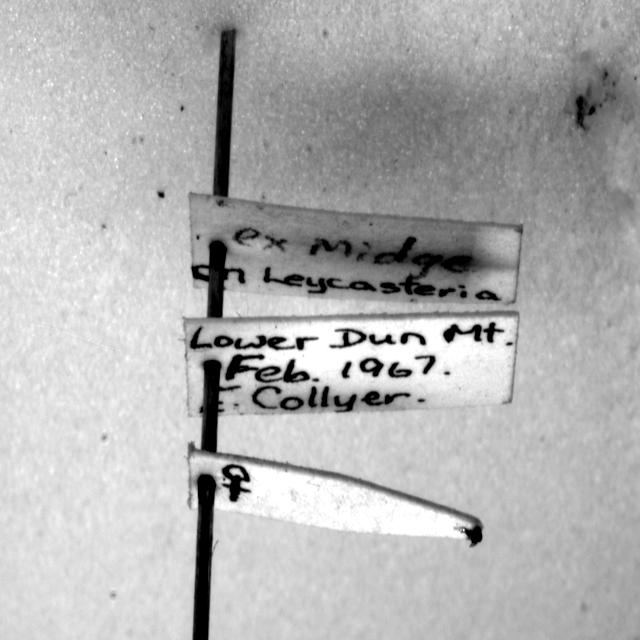 ex Midge
on Leycasteria
Lower Dun Mt.
Feb. 1967.
E. Collyer.
♀